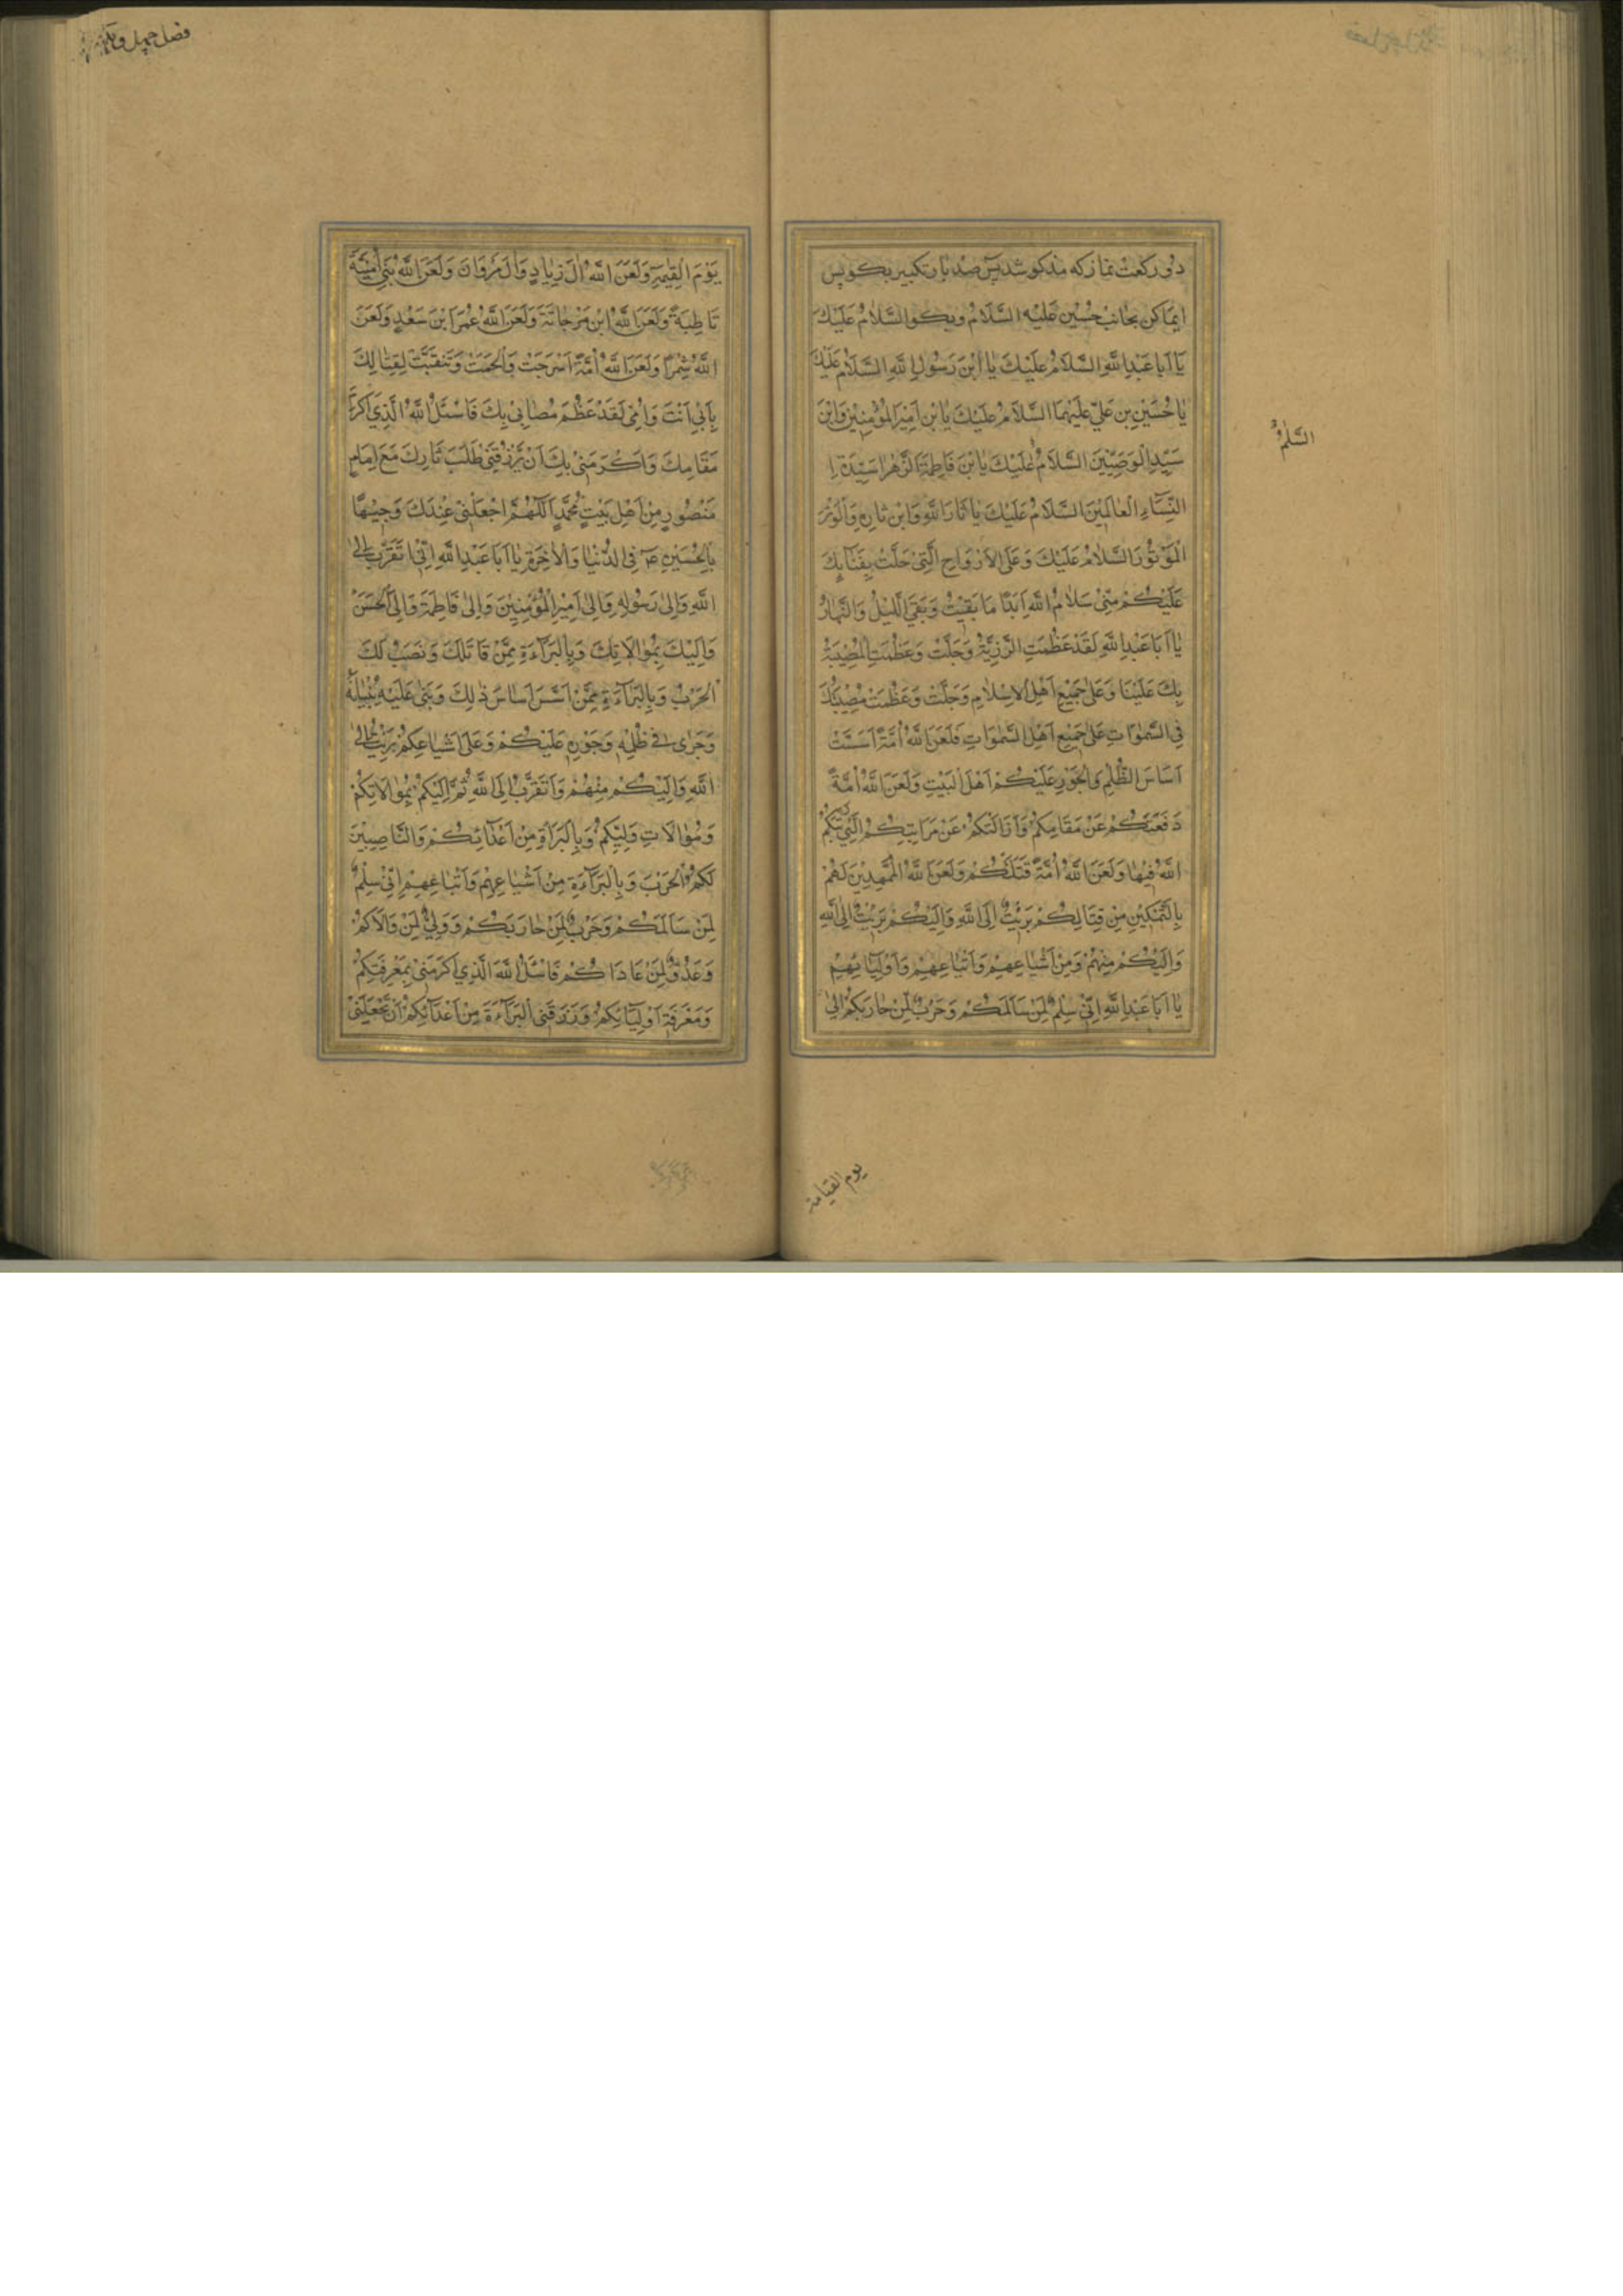 دو رکعت نماز که مذکور شد پس صد بار تکبیر بکو پس
ایما کن بجانب حسین علیه السلام و بکو السَّلَامُ عَلَیْكَ
یَا اَبَا عَبْدِ اللهِ السَّلَامُ عَلَیْكَ یَا ابْنَ رَسُولِ اللهِ السَّلَامُ عَلَیْكَ
یَا حُسَیْنِ بنِ عَلِیٍّ عَلَیْهِمَا السَّلَامُ عَلَیْكَ یَا بْنَ اَمِیرِ الْمُؤْمِنِینَ وَابْنَ
سَیِّدِ الْوَصِیِّینَ السَّلَامُ عَلَیْكَ یَا بْنَ فَاطِمَةَ الزَّهْرَا سَیِّدَةِ
النِّسَآءِ الْعَالَمِیْنَ السَّلَامُ عَلَیْكَ یَا ثَارَ اللهِ وَابْنَ ثَارِهِ وَالْوِتْرَ
الْمَوْتُوْرَ السَّلَامُ عَلَیْكَ وَعَلَی الْاَرْوَاحِ الَّتِیْ حَلَّتْ بِفِنَآئِكَ
عَلَیْكُمْ مِنِّیْ سَلَامُ اللهِ اَبَدًا مَا بَقِیْتُ وَبَقِیَ اللَّیْلُ وَالنَّهَارُ
یَا اَبَا عَبْدِ اللهِ لَقَدْ عَظُمَتِ الرَّزِیَّةُ وَجَلَّتْ وَعَظُمَتِ الْمُصِیْبَةُ
بِكَ عَلَیْنَا وَعَلٰی جَمِیْعِ اَهْلِ الْاِسْلَامِ وَجَلَّتْ وَعَظُمَتْ مُصِیْبَتُكَ
فِی السَّمٰوَاتِ عَلٰی جَمِیْعِ اَهْلِ السَّمٰوَاتِ فَلَعَنَ اللهُ اُمَّةً اَسَّسَتْ
اَسَاسَ الظُّلْمِ وَالْجَوْرِ عَلَیْكُمْ اَهْلَ الْبَیْتِ وَلَعَنَ اللهُ اُمَّةً
دَفَعَتْكُمْ عَنْ مَقَامِكُمْ وَاَزَالَتْكُمْ عَنْ مَرَاتِبِكُمُ الَّتِیْ رَتَّبَكُمُ
اللهُ فِیْهَا وَلَعَنَ اللهُ اُمَّةً قَتَلَتْكُمْ وَلَعَنَ اللهُ الْمُمَهِّدِیْنَ لَهُمْ
بِالتَّمْكِیْنِ مِنْ قِتَالِكُمْ بَرِئْتُ اِلَی اللهِ وَاِلَیْكُمْ بَرِئْتُ اِلَی اللهِ
وَاِلَیْكُمْ مِنْهُمْ وَمِنْ اَشْیَاعِهِمْ وَاَتْبَاعِهِمْ وَاَوْلِیَآئِهِمْ
یَا اَبَا عَبْدِ اللهِ اِنِّیْ سِلْمٌ لِمَنْ سَالَمَكُمْ وَحَرْبٌ لِمَنْ حَارَبَكُمْ اِلٰی
السَّلٰمُ
یوم القیامة
یَوْمِ الْقِیٰمَةِ وَلَعَنَ اللهُ اٰلَ زِیَادٍ وَاٰلَ مَرْوَانَ وَلَعَنَ اللهُ بَنِیْ اُمَیَّةَ
قَاطِبَةً وَلَعَنَ اللهُ ابْنَ مَرْجَانَةَ وَلَعَنَ اللهُ عُمَرَ ابْنَ سَعْدٍ وَلَعَنَ
اللهُ شِمْرًا وَلَعَنَ اللهُ اُمَّةً اَسْرَجَتْ وَاَلْجَمَتْ وَتَنَقَّبَتْ لِقِتَالِكَ
بِاَبِیْ اَنْتَ وَاُمِّیْ لَقَدْ عَظُمَ مُصَابِیْ بِكَ فَاَسْئَلُ اللهَ الَّذِیْ اَكْرَمَ
مَقَامَكَ وَاَكْرَمَنِیْ بِكَ اَنْ یَرْزُقَنِیْ طَلَبَ ثَارِكَ مَعَ اِمَامٍ
مَنْصُوْرٍ مِنْ اَهْلِ بَیْتِ مُحَمَّدٍ اَللّٰهُمَّ اجْعَلْنِیْ عِنْدَكَ وَجِیْهًا
بِالْحُسَیْنِ ع فِی الدُّنْیَا وَالْاٰخِرَةِ یَا اَبَا عَبْدِ اللهِ اِنِّیْ اَتَقَرَّبُ اِلٰی
اللهِ وَاِلٰی رَسُوْلِهِ وَاِلٰی اَمِیْرِ الْمُؤْمِنِیْنَ وَاِلٰی فَاطِمَةَ وَاِلَی الْحَسَنِ
وَاِلَیْكَ بِمُوَالَاتِكَ وَبِالْبَرَآءَةِ مِمَّنْ قَاتَلَكَ وَنَصَبَ لَكَ
الْحَرْبَ وَبِالْبَرَآءَةِ مِمَّنْ اَسَّسَ اَسَاسَ ذٰلِكَ وَبَنٰی عَلَیْهِ بُنْیَانَهُ
وَجَرٰی فِی ظُلْمِهِ وَجَوْرِهِ عَلَیْكُمْ وَعَلٰی اَشْیَاعِكُمْ بَرِئْتُ اِلٰی
اللهِ وَاِلَیْكُمْ مِنْهُمْ وَاَتَقَرَّبُ اِلَی اللهِ ثُمَّ اِلَیْكُمْ بِمُوَالَاتِكُمْ
وَمُوَالَاتِ وَلِیِّكُمْ وَبِالْبَرَآءَةِ مِنْ اَعْدَائِكُمْ وَالنَّاصِبِیْنَ
لَكُمُ الْحَرْبَ وَبِالْبَرَآءَةِ مِنْ اَشْیَاعِهِمْ وَاَتْبَاعِهِمْ اِنِّیْ سِلْمٌ
لِمَنْ سَالَمَكُمْ وَحَرْبٌ لِمَنْ حَارَبَكُمْ وَوَلِیٌّ لِمَنْ وَالَاكُمْ
وَعَدُوٌّ لِمَنْ عَادَاكُمْ فَاَسْئَلُ اللهَ الَّذِیْ اَكْرَمَنِیْ بِمَعْرِفَتِكُمْ
وَمَعْرِفَةِ اَوْلِیَآئِكُمْ وَرَزَقَنِی الْبَرَآءَةَ مِنْ اَعْدَآئِكُمْ اَنْ یَجْعَلَنِیْ